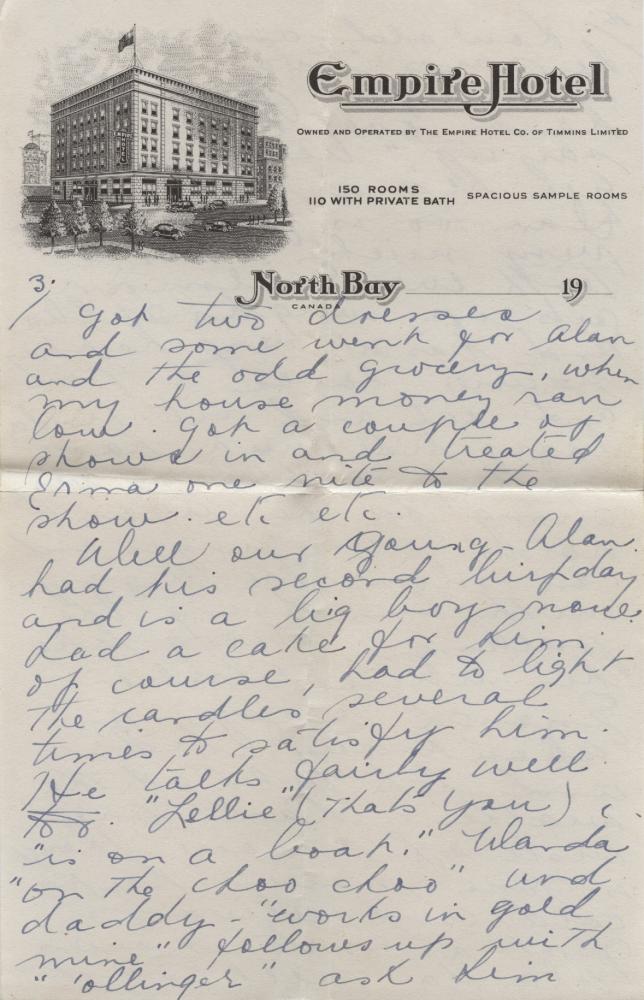 EMPIRE HOTEL
Empire Hotel
OWNED AND OPERATED BY THE EMPIRE HOTEL CO. OF TIMMINS LIMITED
150 ROOMS
110 WITH PRIVATE BATH
SPACIOUS SAMPLE ROOMS
North Bay 19
CANADA
3.
I got two dresses
and some went for Alan
and the odd grocery, when
my house money ran
low. Got a couple of
shows in and treated
Erma one nite to the
show. etc etc.
Well our young Alan
had his second birthday
and is a big boy now.
Had a cake for him
of course, had to light
the candles several
times to satisfy him.
He talks fairly well.
"Lellie" (thats you)
"is on a boat." Wanda
"on the choo choo" and
daddy - "works in gold
mine" follows up with
"'ollinger" ask him